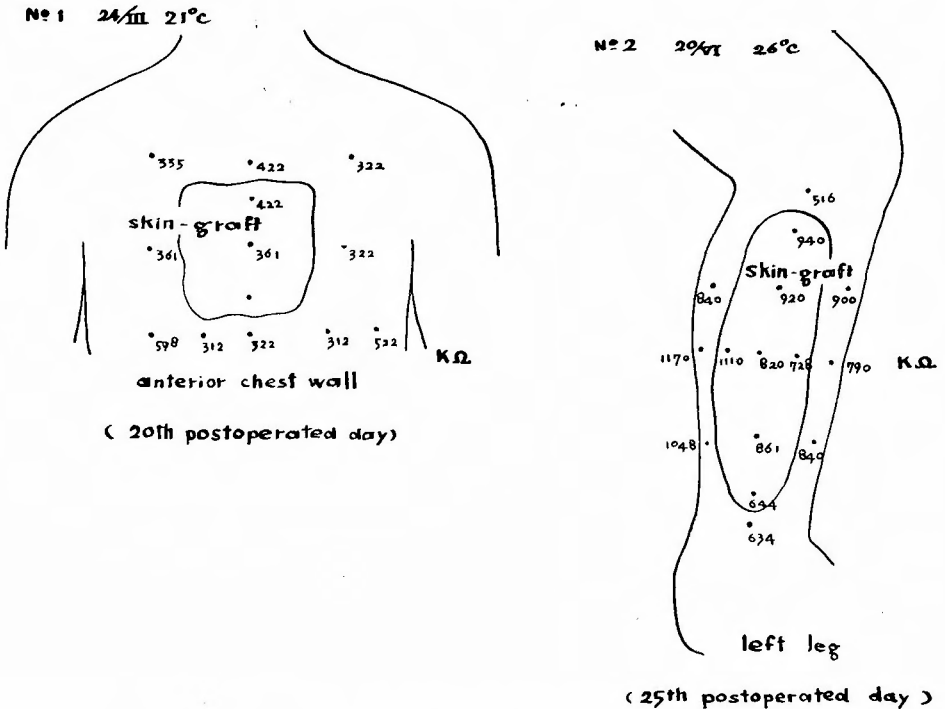 Nº 1 24/III 21°C
335 422 322
422
skin-graft
361 361 322
598 312 322 312 522
KΩ
anterior chest wall
( 20th postoperated day)
Nº 2 20/VI 26°C
516
940
skin-graft
840 920 900
1170 1110 820 728 790 KΩ
1048 861 840
644
634
left leg
( 25th postoperated day )